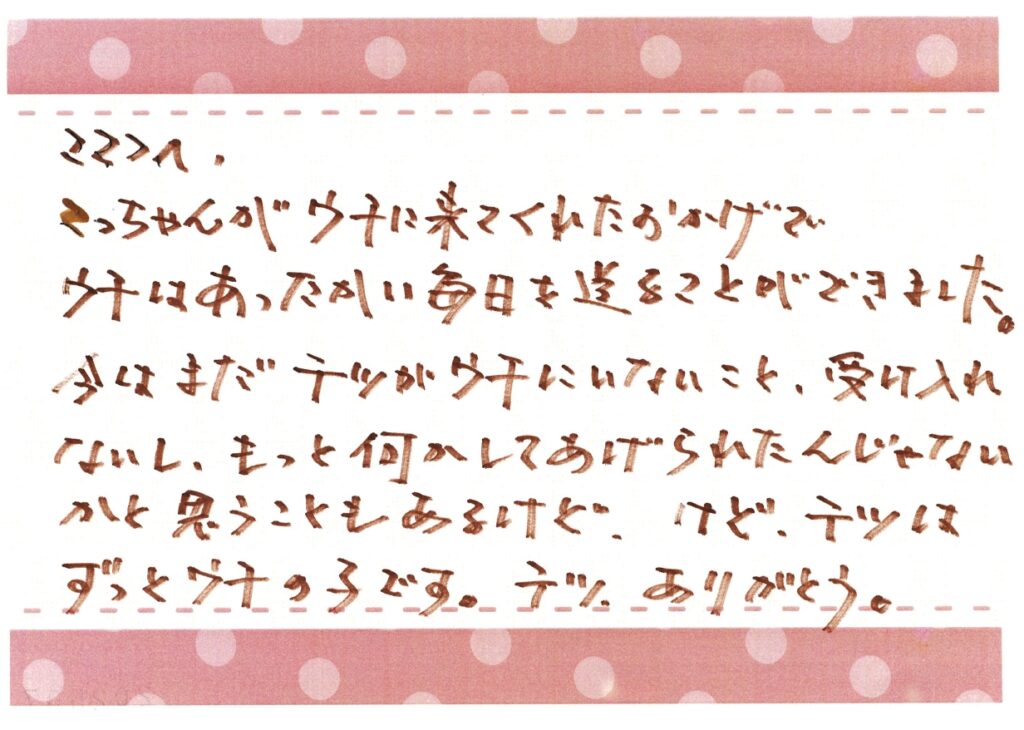 ててつへ、
てっちゃんがウチに来てくれたおかげで
ウチはあったかい毎日を送ることができました。
今はまだテツがウチにいないこと、受け入れ
ないし、もっと何かしてあげられたんじゃない
かと思うこともあるけど、けど、テツは
ずっとウチの子です。テツ、ありがとう。